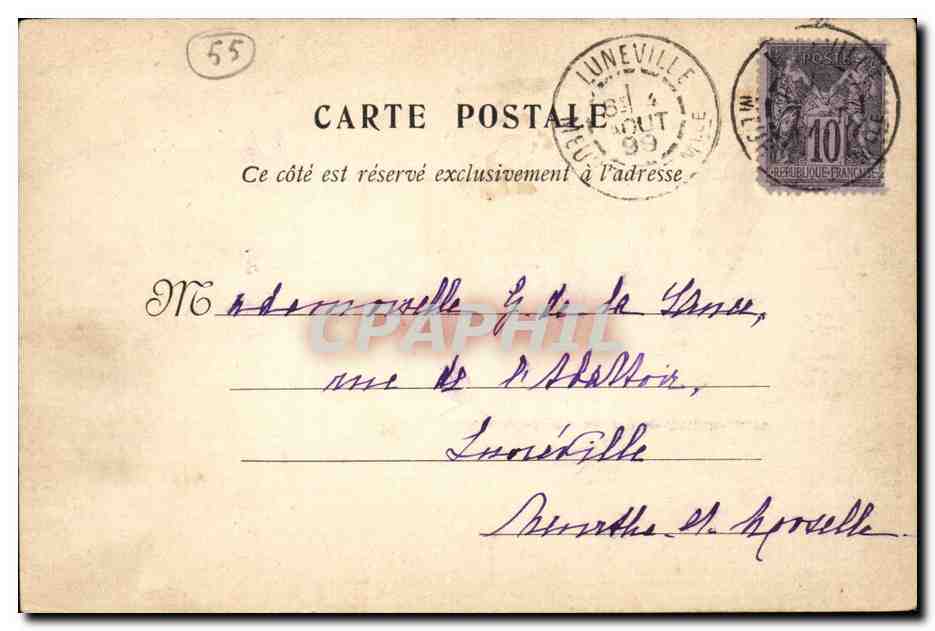 55
LUNEVILLE
8E 4
AOUT
99
MEURTHE MLLE
POSTES
10
REPUBLIQUE FRANCAISE
CARTE POSTALE
Ce côté est réservé exclusivement à l'adresse
Mademoiselle G. de la Lance,
CPAPHIL
rue de l'Abattoir,
Lunéville
Meurthe-et-Moselle